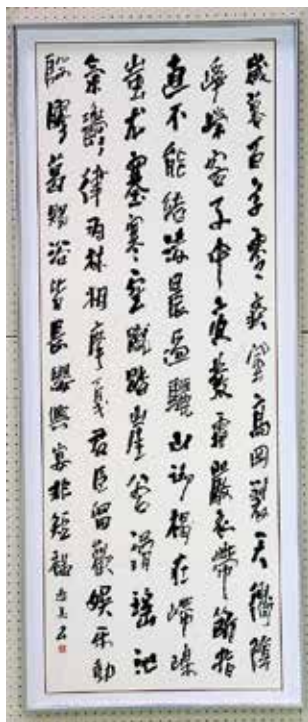 歲暮百草零疾風高岡裂天衢陰
崢嶸客子中夜發霜嚴衣帶斷指
直不能結凌晨過驪山御榻在嵽嵲
蚩尤塞寒空蹴踏崖谷滑瑤池
氣鬱律羽林相摩戛君臣留歡娛樂動
殷膠葛賜浴皆長纓與宴非短褐